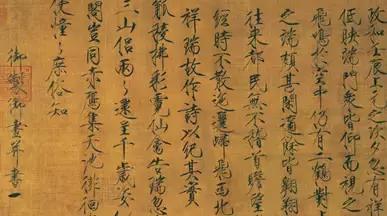 政和壬辰上元之次夕忽有祥
低映端門衆皆仰而視之
飛鳴於空中仍有二鶴對
之端頗甚閑適餘皆翱翔
往來都民無不稽首瞻望
經時不散迤邐歸飛西北
祥瑞故作詩以紀其實
觚稜拂彩霓仙禽告瑞忽
三山侶兩〻還呈千歲姿
閣豈同赤鴈集天池徘徊
使憧〻庶俗知
御製御畫并書